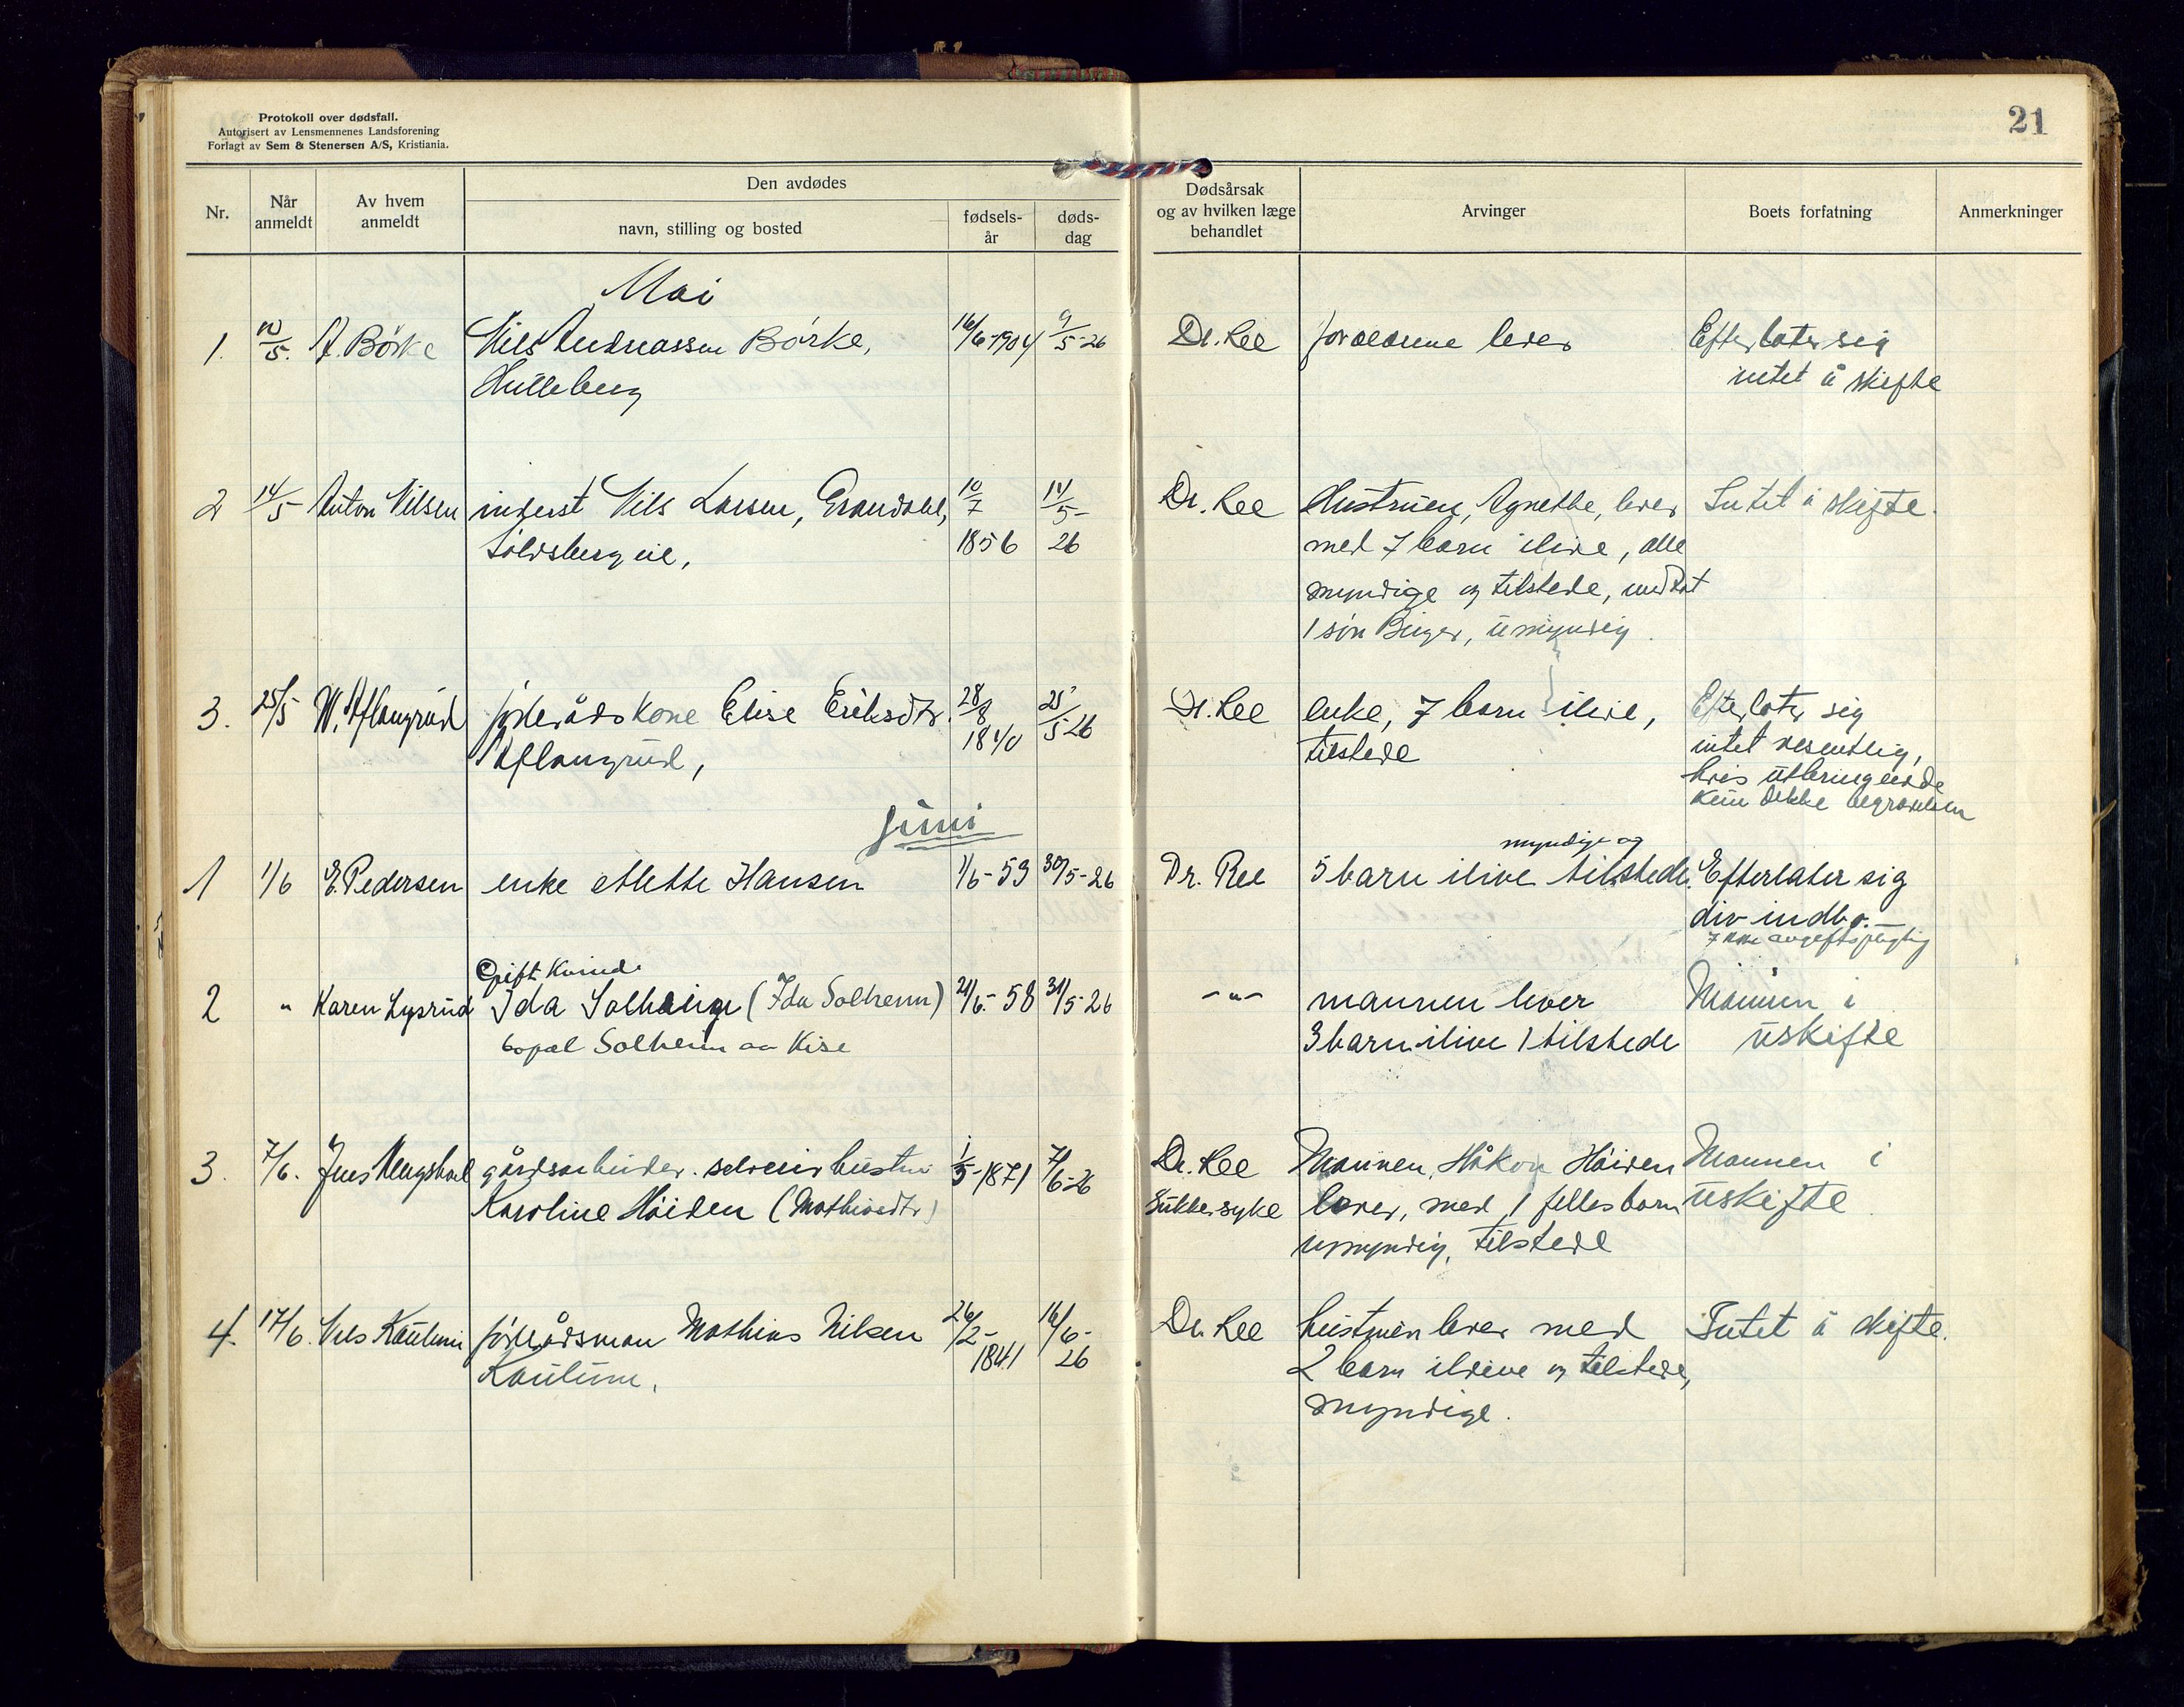 Protokoll over dødsfall.
Autorisert av Lensmennenes Landsforening
Forlagt av Sem & Stenersen A/S, Kristiania.
21
Nr.
Når anmeldt
Av hvem anmeldt
Den avdødes
navn, stilling og bosted
fødsels-år
døds-dag
Dødsårsak og av hvilken læge behandlet
Arvinger
Boets forfatning
Anmerkninger
Mai
1. 10/5. A. Börke Nils Andreassen Börke, 16/6-1904 9/5-26 Dr. Ree foreldrene lever Efterlater sig
Hulleberg intet å skifte
2 14/5 Anton Nilsen inderst Nils Larsen, Grandahl, 10/7 14/5- Dr. Ree Hustruen, Agnethe, lever Intet å skifte.
Solvsberg eie, 1856 26 med 7 barn ilive, alle
myndige og tilstede, undtat
1 sön Birger, umyndig.
3. 25/5 W. Aflangrud föderådskone Elise Eriksdtr. 28/8 25/5 26 Dr. Ree enke, 7 barn ilive, Efterlater sig
Aflangrud, 1840 tilstede intet vesentlig,
hvis utbringende
kun dekke begravelsen
Juni
myndige og
1 1/6 E. Pedersen enke Mette Hansen 1/6-59 30/5-26 Dr. Ree 5 barn ilive tilstede. Efterlater sig
div indbo.-
ikke avgiftspligtig
Gift Kvinde
2 " Karen Lysrud Ida Solheim (Ida Solheim) 21/6.58 31/5-26 -"- mannen lever Mannen i
bopæl Solheim aa Kise 3 barn ilive 1 tilstede uskifte
3. 7/6. Jens Mengshoel gårdsarbeider selveier hustru 1/5-1871 7/6-26 Dr. Ree Mannen, Håkon Höiden Mannen i
Karoline Höiden (Mathiasdtr) Sukkersyke lever, med 1 felles barn uskifte.
umyndig, tilstede
4. 17/6. Nils Kaulum föderådsman Mathias Nilsen 26/2- 16/6- Dr. Ree hustruen lever med Intet å skifte.
Kaulum, 1841 26 2 barn ilive og tilstede,
myndige.